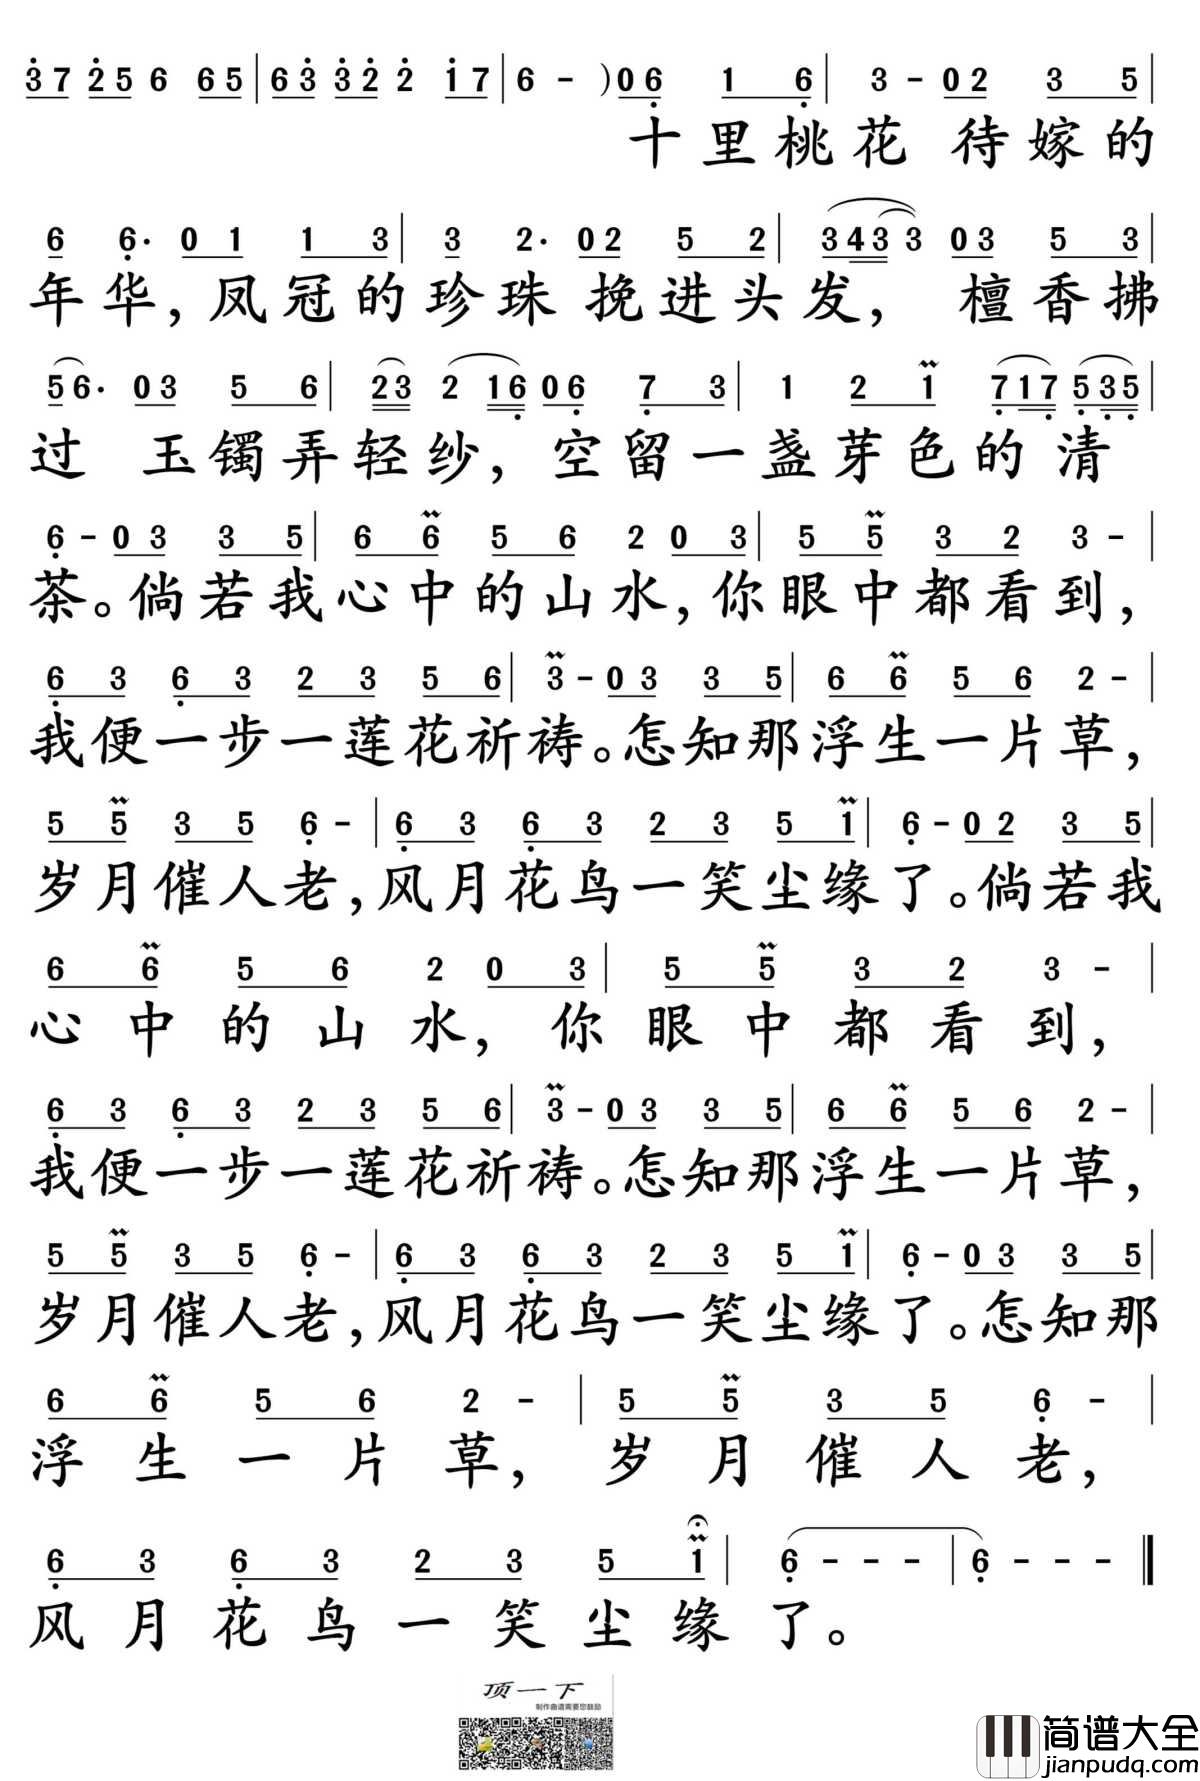 3 7 2 5 6 6 5 | 6 3 3 2 2 1 7 | 6 - ) 0 6 1 6 | 3 - 0 2 3 5 |
十里桃花 待嫁的
6 6· 0 1 1 3 | 3 2· 0 2 5 2 | 3 4 3 3 0 3 5 3 |
年华,凤冠的珍珠 挽进头发, 檀香拂
5 6· 0 3 5 6 | 2 3 2 1 6 0 6 7 3 | 1 2 1 7 1 7 5 3 5 |
过 玉镯弄轻纱,空留一盏芽色的清
6 - 0 3 3 5 | 6 6 5 6 2 0 3 | 5 5 3 2 3 - |
茶。倘若我心中的山水,你眼中都看到,
6 3 6 3 2 3 5 6 | 3 - 0 3 3 5 | 6 6 5 6 2 - |
我便一步一莲花祈祷。怎知那浮生一片草,
5 5 3 5 6 - | 6 3 6 3 2 3 5 1 | 6 - 0 2 3 5 |
岁月催人老,风月花鸟一笑尘缘了。倘若我
6 6 5 6 2 0 3 | 5 5 3 2 3 - |
心中的山水,你眼中都看到,
6 3 6 3 2 3 5 6 | 3 - 0 3 3 5 | 6 6 5 6 2 - |
我便一步一莲花祈祷。怎知那浮生一片草,
5 5 3 5 6 - | 6 3 6 3 2 3 5 1 | 6 - 0 3 3 5 |
岁月催人老,风月花鸟一笑尘缘了。怎知那
6 6 5 6 2 - | 5 5 3 5 6 - |
浮生一片草,岁月催人老,
6 3 6 3 2 3 5 1 | 6 - - - | 6 - - - ‖
风月花鸟一笑尘缘了。
顶一下
制作曲谱需要您鼓励
简谱大全
jianpudq.com